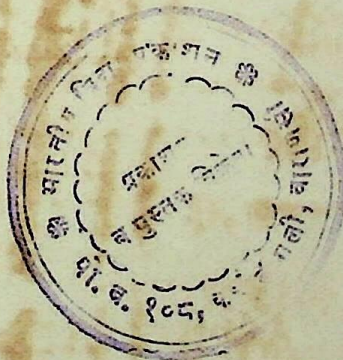 ❀ भारतीय विद्या प्रकाशन ❀
वाराणसी
पो. ब. १०८, गली,
प्रकाशक
व पुस्तक विक्रेता